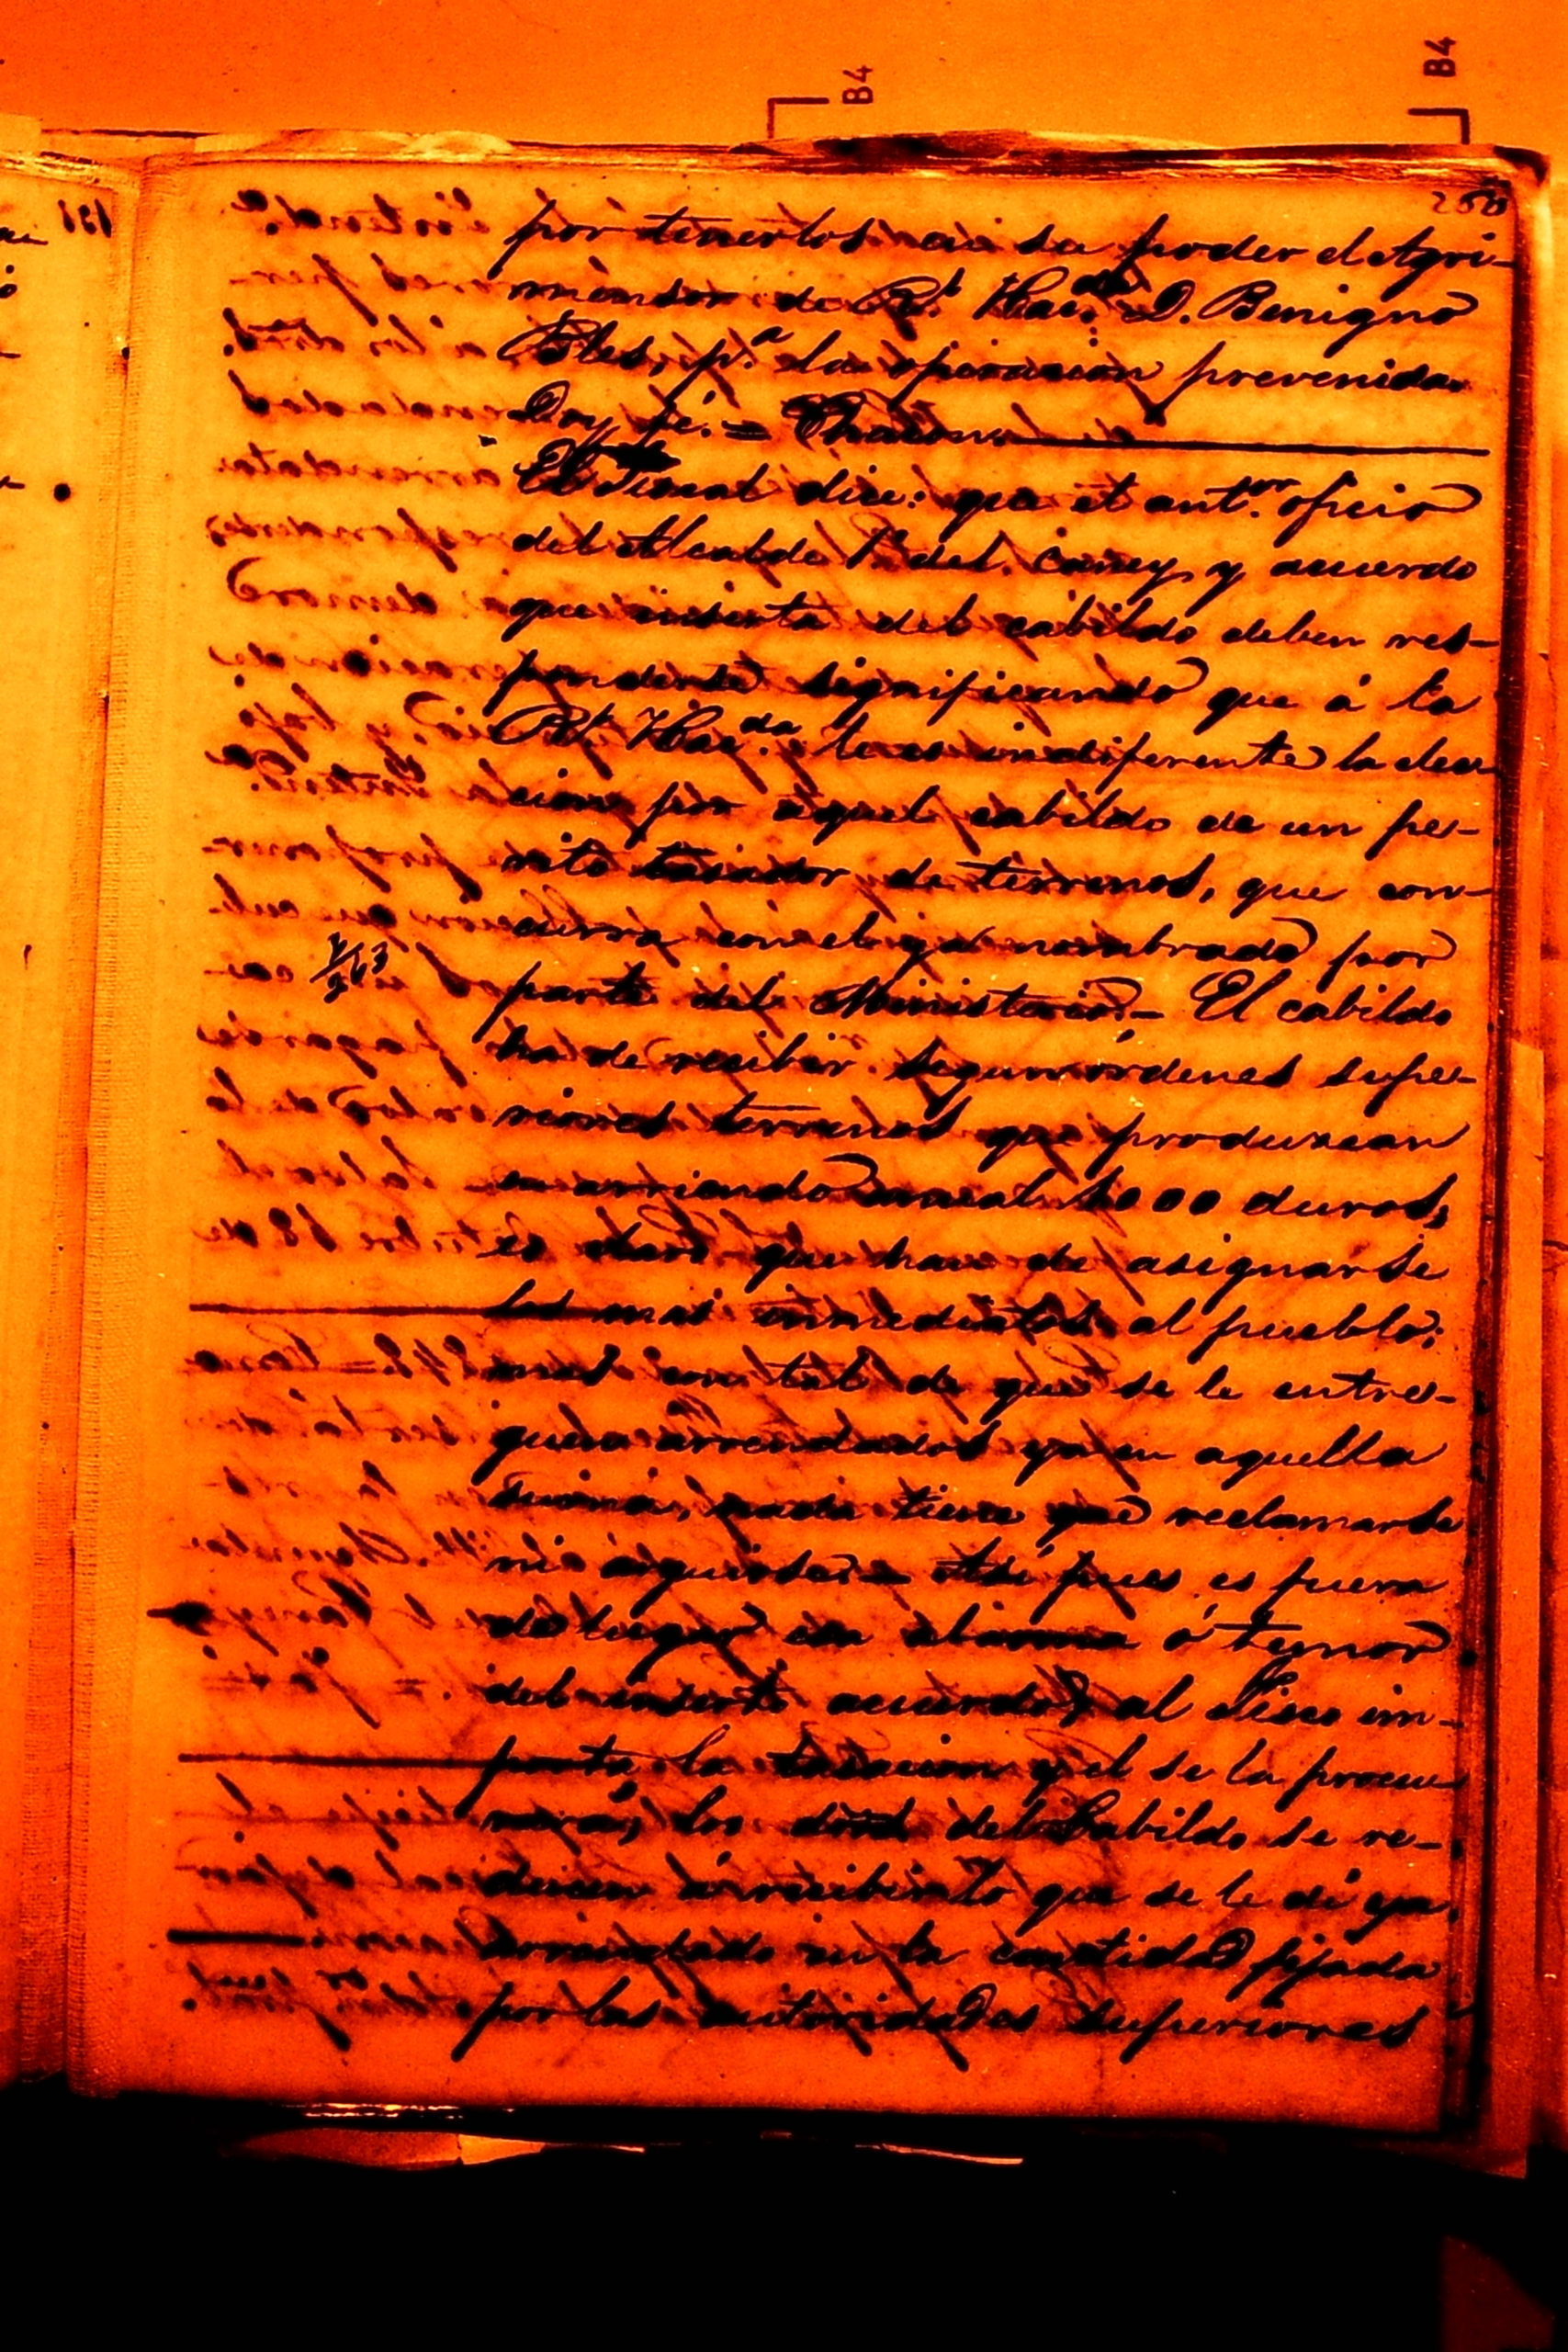 B4
B4
260
por tenerlos en su poder el Agri-
mensor de Rl. Hacda. D. Benigno
pa. la operacion prevenida
Doy fé. = Chacon
El Fiscal dice: que el antor. oficio
del Alcalde 1o. del Caney y acuerdo
que inserta del cabildo deben res-
ponderse significando que á la
Rl. Hacda. le es indiferente la elec-
cion por aquel cabildo de un pe-
rito tasador de terrenos, que con-
curra con el ya nombrado por
parte del Ministerio. - El cabildo
ha de recibir segun ordenes supe-
riores terrenos que produzcan
en arriendo anual 1000 duros,
es claro que han de asignarse
los mas inmediatos al pueblo;
mas con tal de que se le entre-
guen arrendados ya en aquella
suma, nada tiene que reclamarse
ni arguirse. = Asi pues es fuera
de lugar la alarma ó temor
del inserto acuerdo; al Fisco im-
porta la tasacion y el se la procu-
rará, los del Cabildo se re-
ducen á recibir lo que se le dé ya
arrendado en la cantidad fijada
por las autoridades superiores